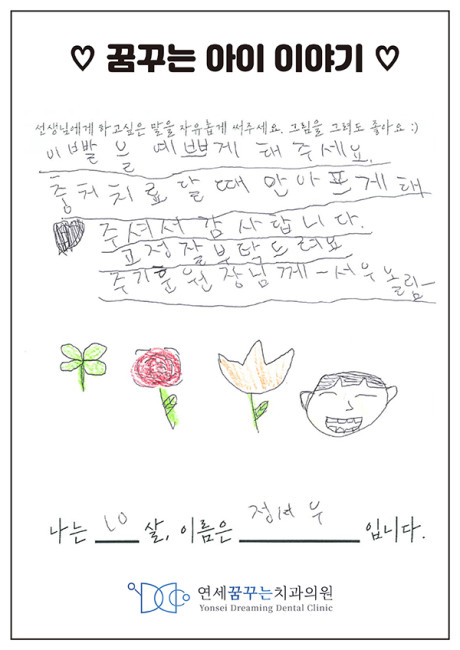 ♡ 꿈꾸는 아이 이야기 ♡
선생님에게 하고싶은 말을 자유롭게 써주세요. 그림을 그려도 좋아요 :)
이빨을 예쁘게 해주세요.
충치치료 할 때 안아프게 해
주셔서 감사합니다.
교정잘부탁드려요
주기훈원장님께-서우올림-
나는 10 살, 이름은 정서우 입니다.
연세꿈꾸는치과의원
Yonsei Dreaming Dental Clinic